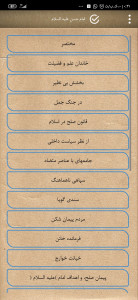 امام حسن علیه السلام
مختصر
خاندان علم و فضیلت
بخشش بی نظیر
در جنگ جمل
قانون صلح در اسلام
از نظر سیاست داخلی
جامعه‎ای با عناصر متضاد
سپاهی ناهماهنگ
سندی گویا
مردم پیمان شکن
فرمانده خائن
خیانت خوارج
پیمان صلح، و اهداف امام (علیه السلام )